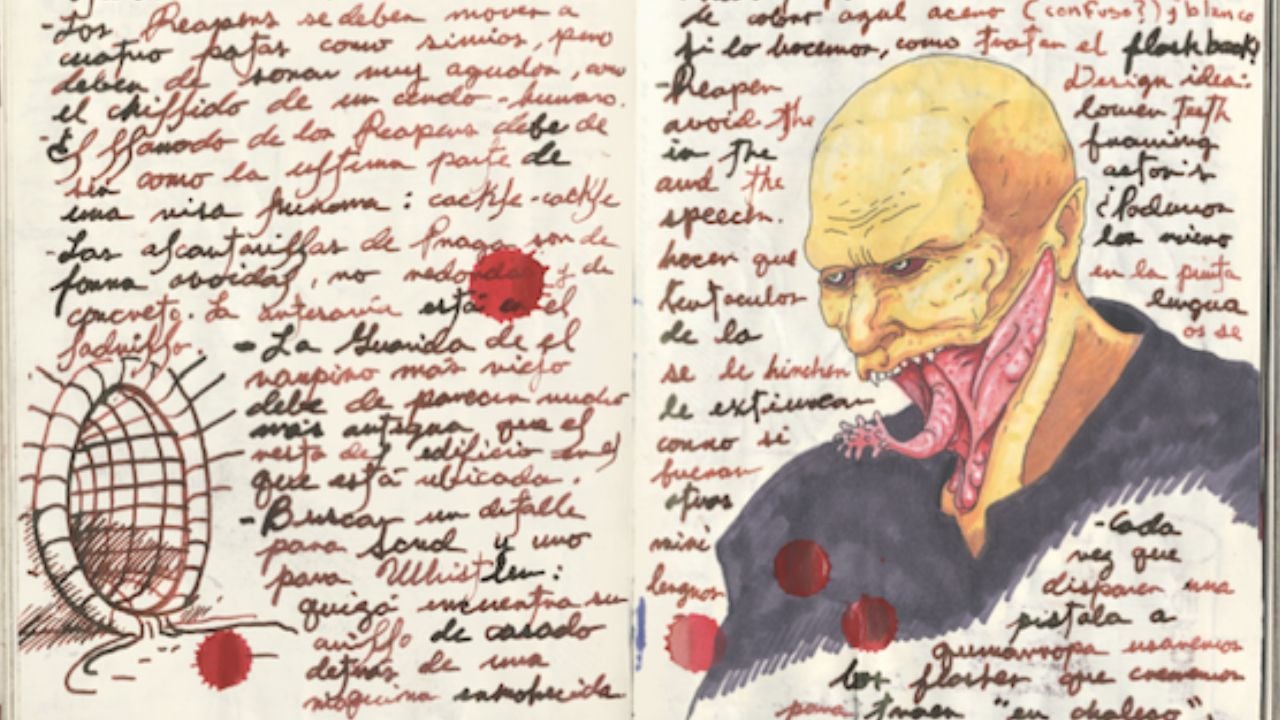 -Los Reapers se deben mover a
cuatro patas como simios, pero
deben de sonar muy agudos, como
el chillido de un cerdo-humano.
-El llamado de los Reapers debe de
ser como la ultima parte de
una risa humana: cackle-cackle
-Las alcantarillas de Praga son de
forma ovoidal, no redondas y de
concreto. La está en el
ladrillo.
-La Guarida de el
vanpiro más viejo
debe de parecer mucho
más antigua que el
resto del edificio en el
que está ubicada.
-Buscar un detalle
para Scud y uno
para Whistler:
quizá encuentra su
anillo de casado
detras de una
maquina enmohecida
de color azul acero (confuso?) y blanco
si lo hacemos, como tratar el flashback?
-Reaper
avoid the
in the
and the
speech.
hacer que
tentaculos
de la
se le hinchen
le
como si
fueran
otras
mini
lenguas
Design idea:
lower teeth
framing
actor's
¿Podemos
los mino
en la punta
lengua
os se
-Cada
vez que
disparen una
pistola a
quemarropa usaremos
los flashes que creamos
para traer "en chaleco"